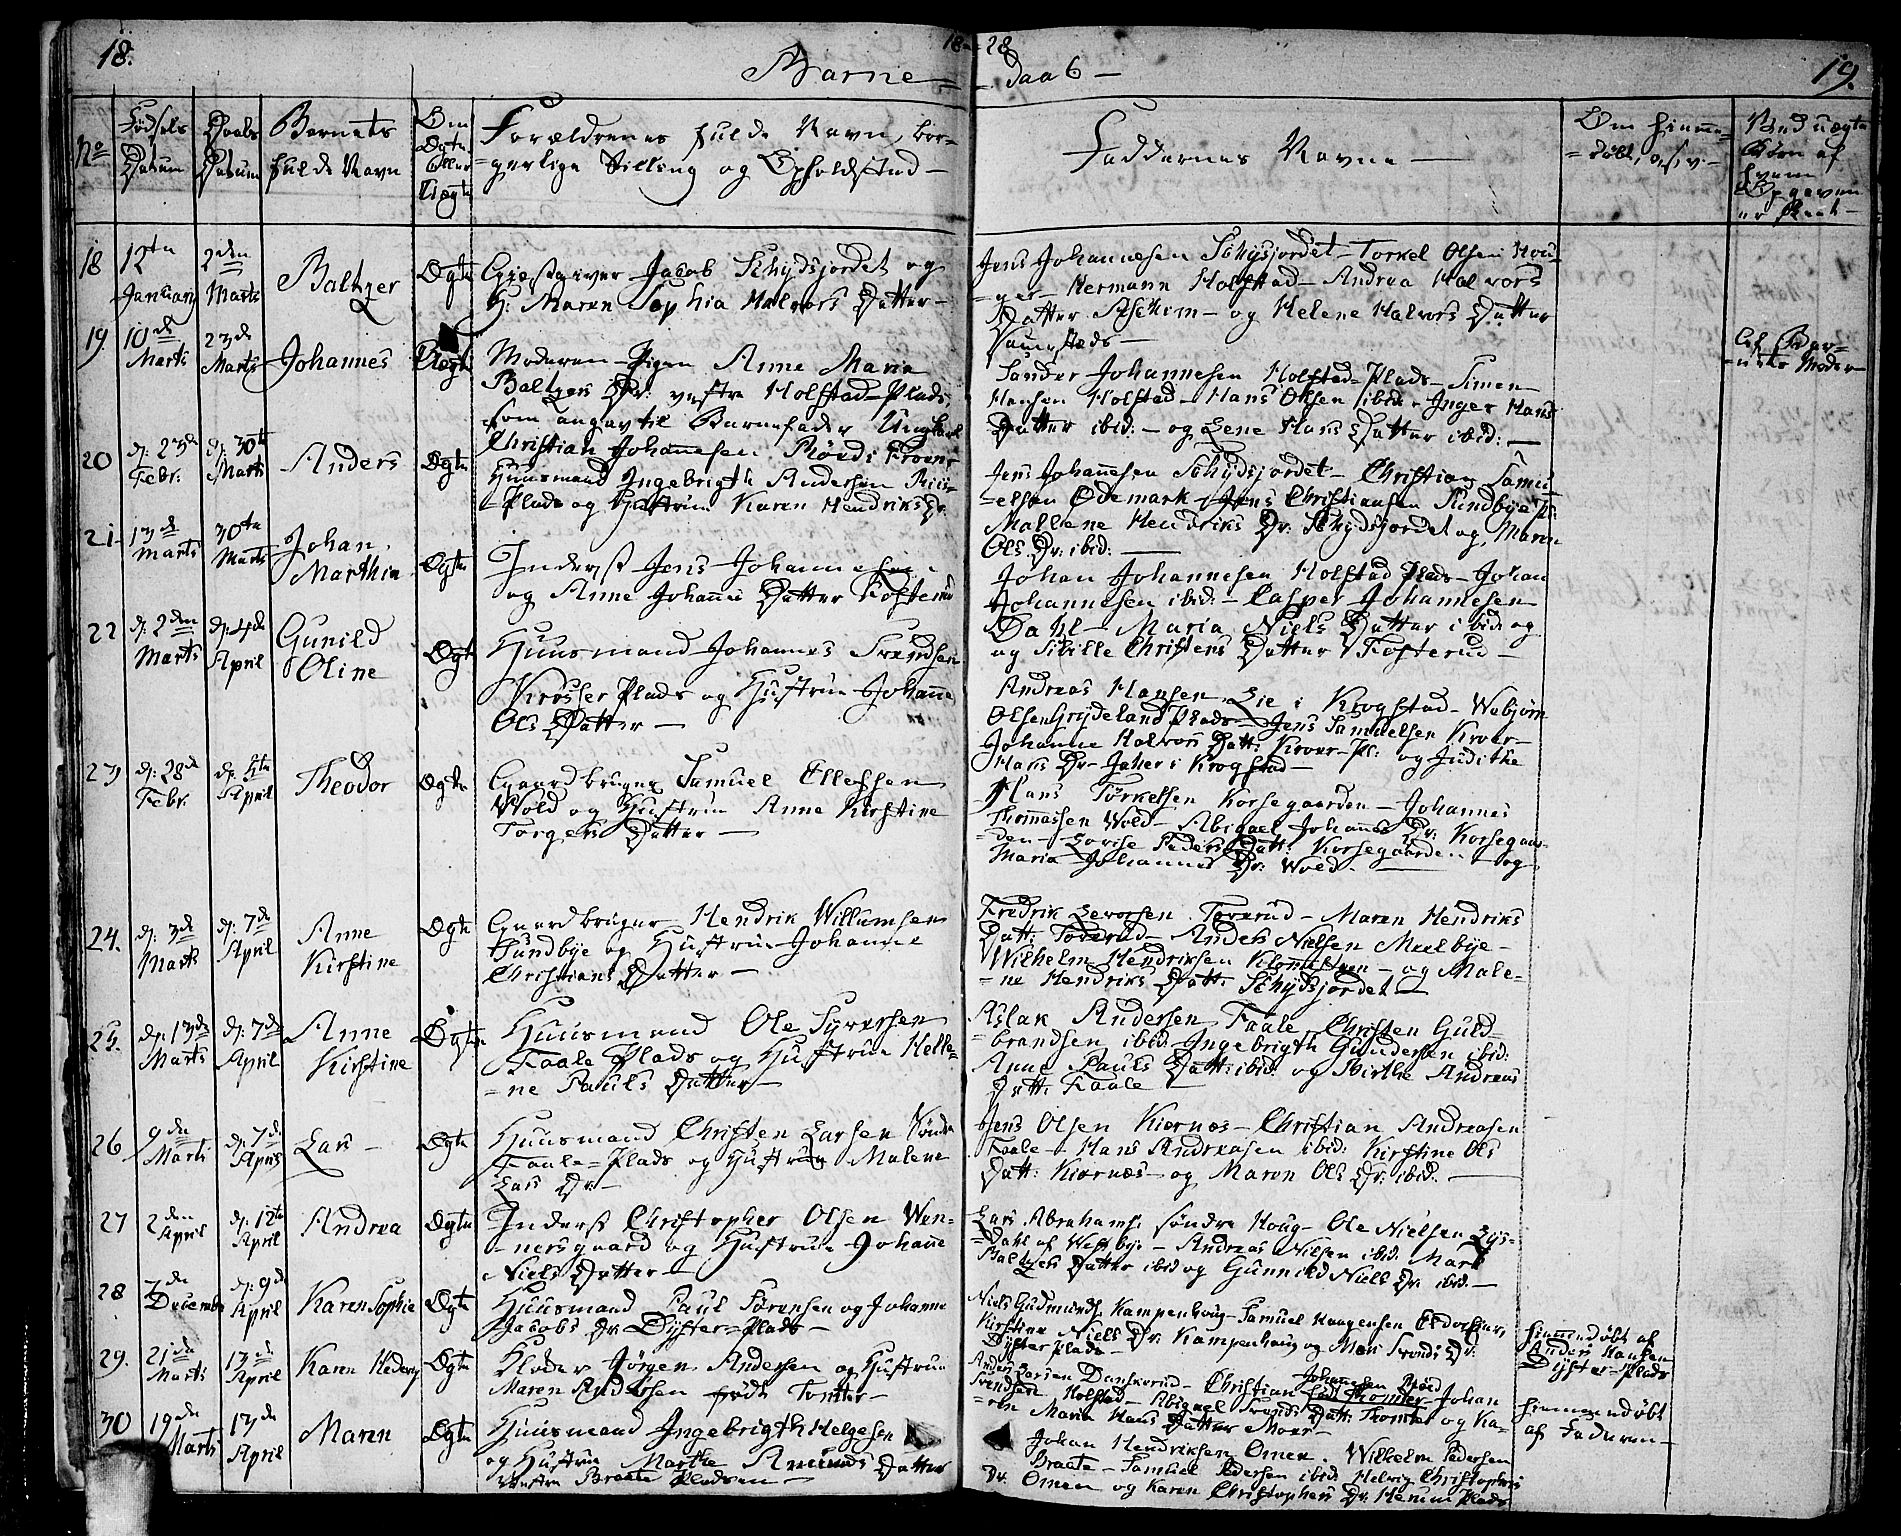 18.
18 28
19.
Barne-
daab -
No
Fødsels Datum
Daabs Datum
Barnets fulde Navn
Om Ægte eller Uægte
Forældrenes fulde Navn, bor-
=gerlige Stilling og Opholdsted -
Faddernes Navne -
Om hiemme-
=døbt, o, s, v. -
Ved uægte
Børn af
hvem
Opgaven
er skeet -
18 12te Januarj 2den Marts Baltzer Ægte
Giestgiver Jacob Schydsjordet og
H: Maren Sophia Halvors Datter -
Jens Johannesen Schysjordet - Torkel Olsen Hou-
=ger - Hermann Holstad - Andrea Halvors
Datter Askim - og Helene Halvors Datter
19. 10de Marts 23de Marts Johannes Uægte
Moderen - Pigen Anne Maria
Baltzers Dr: vestre Holstad-Plads,
som angav til Barnefader Ungkarl
Christian Johannesen
Sander Johannesen Holstad-Plads - Simen
Hansen Holstad - Hans Olsen ibid - Inger Hans
Datter ibid: - og Lene Hans Datter ibid: -
Moder
20 d: 23de Febr: d: 30te Marts Anders Ægte
Huusmand Ingebrigth Andersen Riis-
-Plads og Hustrue Karen Hendriks Dr.
Jens Johannesen Schydsjordet - Christian Samu-
=elsen Ødemark - Jens Christiansen Sundbye Pl:
Mallene Hendriks Dr. Schydsjordet og Maren
Ols Dr: ibid: -
21. 13de Marts 30te Marts Johan Marthin Ægte
Inderst Jens Johannesen
og Anne Johanne Datter Fosterud
Johan Johannesen Holstad Plads - Johan
Johannesen ibid: - Casper Johannesen
Dahl - Maria Niels Datter ibid og
og Sibille Christens Datter Fosterud -
22 d: 2den Marts d: 4de April Gunild Oline Ægte
Huusmand Johannes Svendsen
Krosser Plads og Hustrue Johanne
Ols Datter -
Andreas Hansen Lie i Krogstad - Webjørn
Olsen Grydeland Plads - Jens Samuelsen Kroer -
Johanne Halvors Datt: Kroer-Pl: og Judithe
Hans Dr - Jaher i Krogstad -
23 d: 28de Febr. d: 5te April Theodor Ægte
Gaardbruger Samuel Ellefsen
Wold og Hustrue Anne Kirstine
Torgers Datter -
Hans Torkelsen Korsegaarden - Johannes
Thomassen Wold - Abigael Johannes Dr: Korsegaar-
=den - Lovise Peders Datt: Korsegaarden - og
Maria Johannes Dr: Wold. -
24. d: 3de Marts d: 7de April Anne Kirstine Ægte
Gaardbruger Hendrik Willumsen
Sundbye og Hustrue Johanne
Christians Datter -
Fredrik Sevorsen Toverud - Maren Hendriks
Datt: Toverud - Anders Nielsen Meelbye -
Wilhelm Hendriksen - og Male-
=ne Hendriks Datt: Schydsjordet -
25. d: 13de Marts d: 7de April Anne Kirstine Ægte
Huusmand Ole Syversen
Faale Plads og Hustrue Helle-
=ne Pauls Datter -
Aslak Andersen Faale, Christen Guld-
=brandsen ibid: Ingebrigth Gundersen ibid:
Anne Pauls Datt: ibid og Birthe Andreas
Datt: Faale -
26 9de Marts d: 7de April Lars - Ægte
Huusmand Christen Larsen Søndre
Faale-Plads og Hustrue Malene
Lars Dr -
Jens Olsen Kiernæs - Christian Andreasen
Faale - Hans Andreasen ibid: Kirstine Ols
Datt: Kiernæs - og Maren Ols Dr: ibid. -
27 2den April d: 12te April Andrea Ægte
Inderst Christopher Olsen Wen-
=nersgaard og Hustrue Johanne
Niels Datter -
Lars Abrahams: søndre Houg - Ole Nielsen Lys-
=dahl af Westbye - Andreas Nilsen ibid:
Baltzers Datter ibid og Gunnild Niels Dr. ibid. -
28 7de December d: 9de April Karen Sophie Ægte
Huusmand Paul Sørensen og Johanne
Jacobs Dr Dyster-Plads -
Niels Gudmunds: Kampenhoug - Samuel Haagensen
Kirstine Niels Dr. Kampenhoug og Mari Svends Dr:
Dyster Plads -
hiemmedøbt af
Anders Hansen
Dyster-Plads
29. 21de Marts 13de April Karen Hedevig Ægte
Kloder Jørgen Andersen og Hustrue
Maren født Tomter -
Anders Larsen Danskerud - Christian Johannesen - Johan
Svendsen Holstad - Abiguel Svends Datt: Tomter og Ka-
=ren Maria Hans Datter Moer -
hiemmedøbt
af Faderen -
30 19de Marts 13de April Maren Ægte
Huusmand Ingebrigth Helgesen
og Hustrue Marthe Amunds Datter
Vestre Braate Pladsen -
Johan Hendriksen Omen. Wilhelm Pedersen
Braate - Samuel Pedersen ibid Helvig Christophers
Dr. Omen og Karen Christophers Dr: Herum Plads